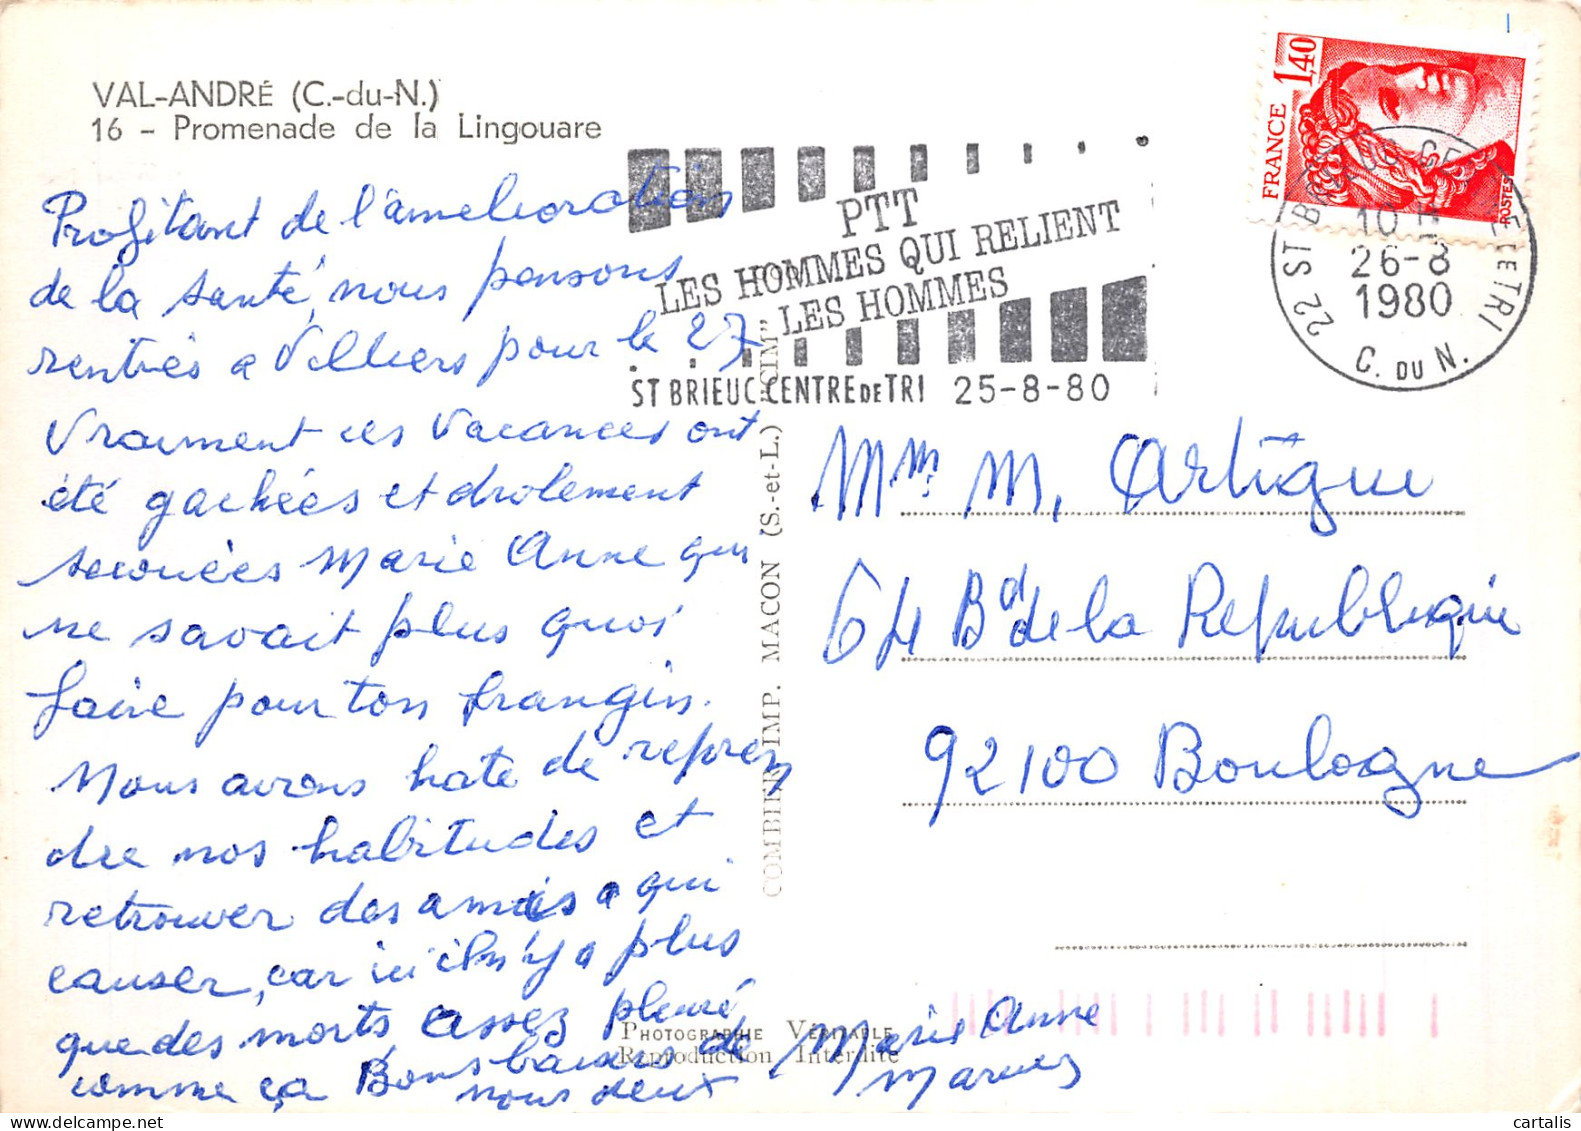 VAL-ANDRÉ (C.-du-N.)
16 - Promenade de la Lingouare
Profitant de l'amélioration
de la santé, nous pensons
rentrés a Villiers pour le 27
Vraiment ces vacances ont
été gachées et drolement
secouées Marie Anne qui
ne savait plus quoi
faire pour ton frangin.
Nous avons hate de repren
dre nos habitudes et
retrouver des amis a qui
causer, car ici il n'y a plus
que des morts assez pleuré
comme ça Bons baisers de
nous deux
Marie Anne
FRANCE 1,40
POSTES
PTT
LES HOMMES QUI RELIENT
LES HOMMES
ST BRIEUC CENTRE DE TRI 25-8-80
22 ST BRIEUC CENTRE DE TRI
10 H
26-8
1980
C. DU N.
COMBIER IMP. MACON (S.-et-L.) "CIM"
Mme M. Artigue
64 Bd de la Republique
92100 Boulogne
PHOTOGRAPHIE VÉRITABLE
Reproduction Interdite
cartalis